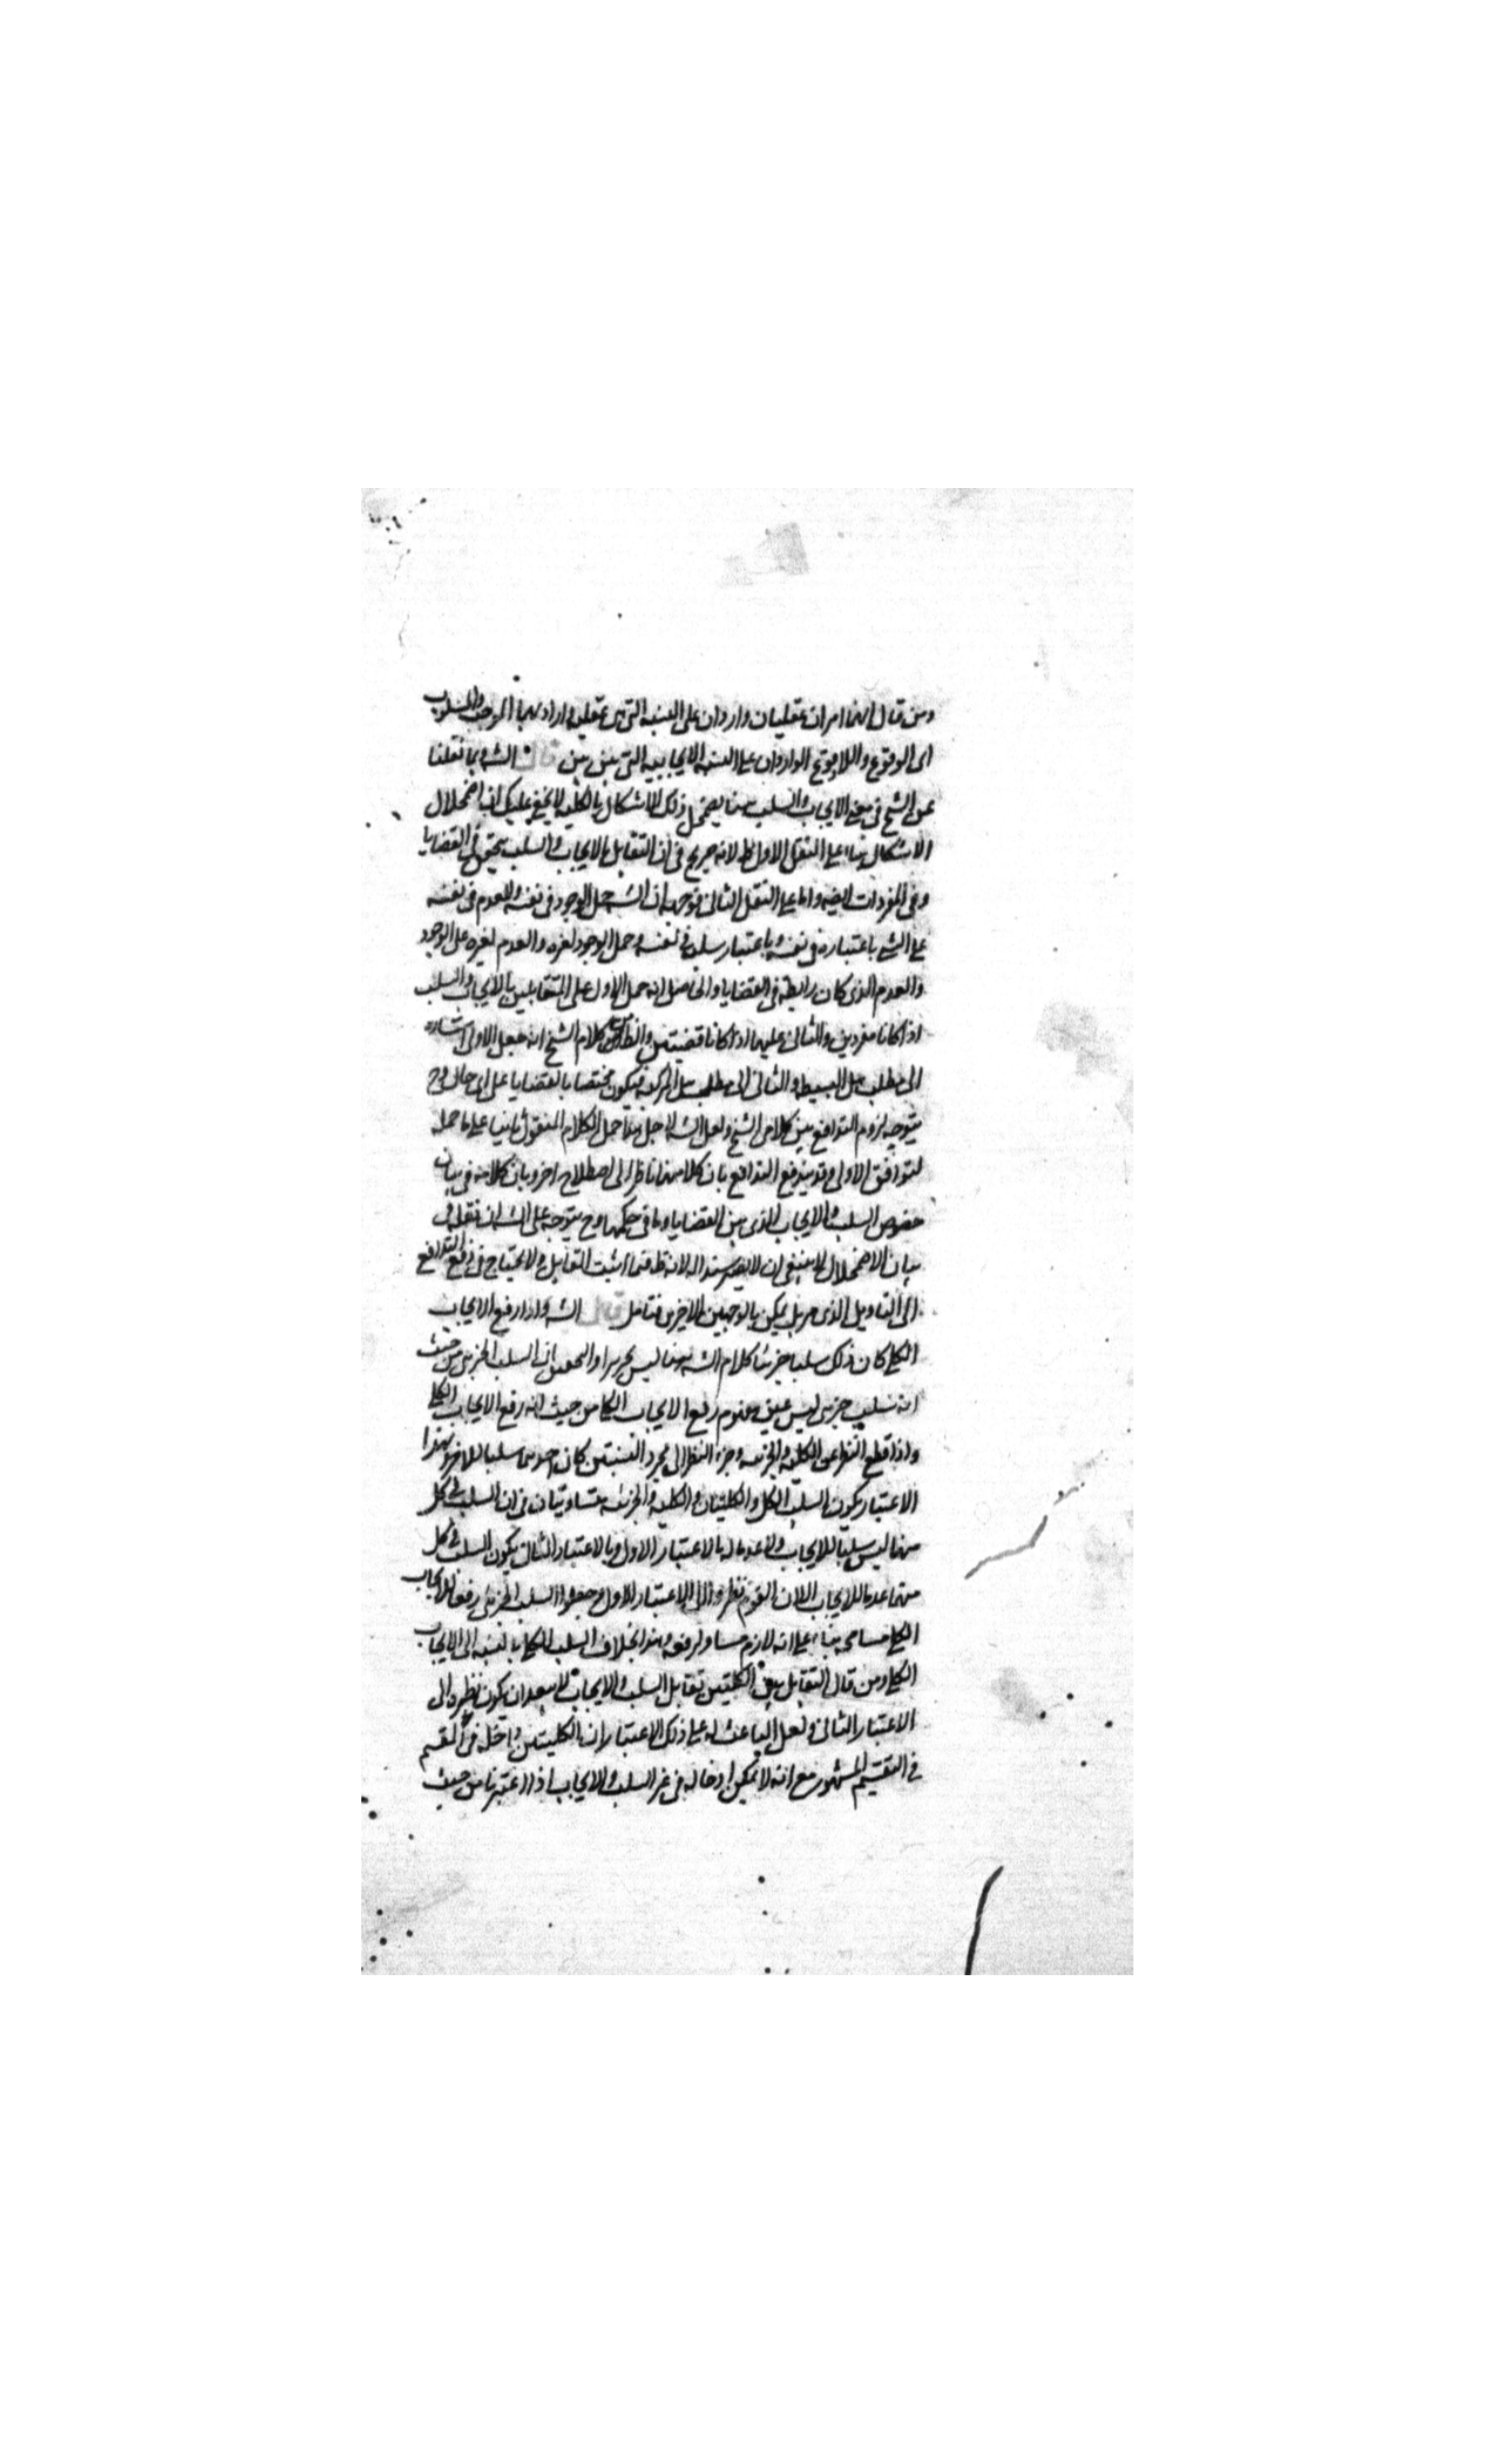 ومن قال انهما امران عقليان واردان على النسبة التي هي عقلية اراد بهما الموجب والسلوب
اى الوقوع واللاوقوع الواردان على النسبة الايجابية التي بين بين قال الشه وبما نقلنا
عن الشيخ في معنى الايجاب والسلب ههنا يضمحل ذلك الاشكال بالكلية لا يخفى عليك ان اضمحلال
الاشكال بناء على النقل الاول ظ لانه صريح في ان التقابل بالايجاب والسلب يتحقق في القضايا
وفي المفردات ايضه واما على النقل الثاني فوجهه ان الشه حمل الوجود في نفسه والعدم في نفسه
على الشيء باعتباره في نفسه وباعتبار سلبه في نفسه وحمل الوجود لغيره والعدم لغيره على الوجود
والعدم الذي كان رابطة في القضايا والحاصل انه حمل الاول على المتقابلين بالايجاب والسلب
اذا كانا مفردين والثاني عليهما اذا كانا قضيتين والظاهر من كلام الشيخ انه جعل الاول اشارة
الى مطلب هل البسيطة والثاني الى مطلب هل المركبة فيكون مختصا بالقضايا على اى حال وح
يتوجه لزوم التدافع بين كلامى الشيخ ولعل الشه لاجل هذا حمل الكلام المنقول ثانيا على ما حمله
لتوافق الاولى وقد يندفع التدافع بان كلا منهما ناظر الى اصطلاح اخر وبان كلامه في بيان
خصوص السلب والايجاب الذي بين القضايا وما في حكمها وح يتوجه على الشه ان نقله في
بيان الاضمحلال لا ينبغى ان لا يصير سندا له لانه ... اثبت التقابل ولا يحتاج في دفع التدافع
الى التاويل الذي مر بل يمكن بالوجهين الاخرين فتامل قال الشه واذا رفع الايجاب
الكلى كان ذلك سلبا جزئيا كلام الشه ههنا ليس تحريرا والتحقيق ان السلب الجزئي من حيث
انه سلب جزئي ليس عين مفهوم رفع الايجاب الكلى من حيث انه رفع الايجاب الكلى
واذا قطع النظر عن الكلية والجزئية وجرد النظر الى مجرد النسبتين كان احدهما سلبا للاخر وبهذا
الاعتبار يكون السلب الكلى والكليتان والكلية والجزئية متساويتان في ان السلب في كل
منها ليس سلبا للايجاب ولا عدما له بالاعتبار الاول وبالاعتبار الثاني يكون السلب في كل
منهما عدما للايجاب الا ان القوم نظروا الى الاعتبار الاول وجعلوا السلب الجزئي رفعا للايجاب
الكلى مسامحة بناء على انه لازم مساو لرفعه وهذا بخلاف السلب الكلى بالنسبة الى الايجاب
الكلى ومن قال التقابل بين الكليتين تقابل السلب والايجاب لا يبعد ان يكون نظره الى
الاعتبار الثاني ولعل الباعث له على ذلك الاعتبار ان الكليتين داخلة في المقسم
في التقسيم المشهور مع انه لا يمكن ادخاله في غير السلب والايجاب اذا اعتبرنا من حيث